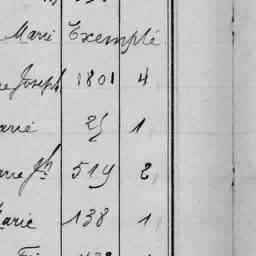 Marie Exempté
Joseph 1801 4
arie 25 1
rre Jh 519 2
Marie 138 1